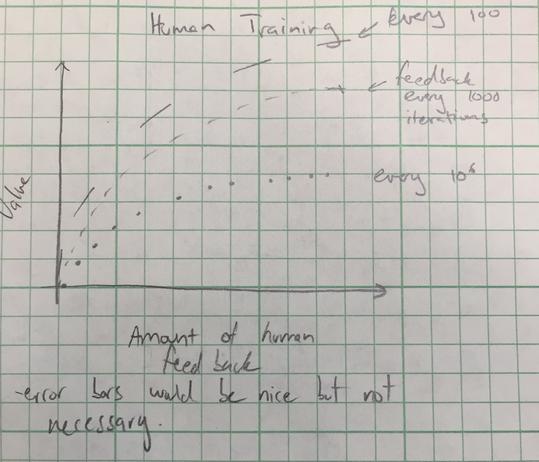 Value
Human Training
Every 100
feedback
every 1000
iterations
every 10⁶
Amount of human
feedback
-error bars would be nice but not
necessary.